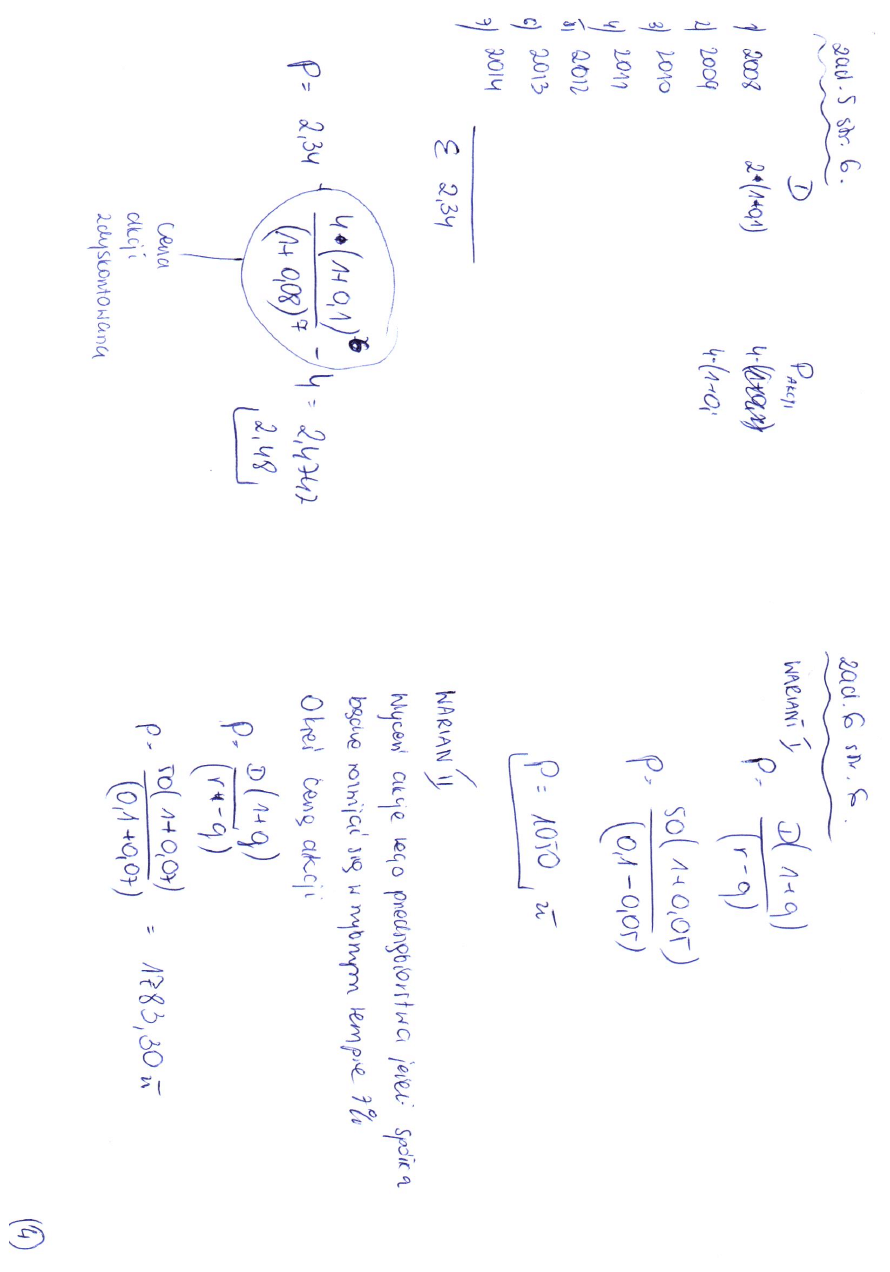 zad. 5 str. 6.
D P AKCJI
1) 2008 2•(1+0,1) 4•(1+0,1)
2) 2009 4•(1+0,
3) 2010
4) 2011
5) 2012
6) 2013
7) 2014
Σ 2,34
P = 2,34 + 4•(1+0,1)^6 / (1+0,08)^7 - 4 = 2,4747
2,48
cena
akcji
zdyskontowana
zad. 6 str. 6.
WARIANT I
P = D(1+g) / (r-g)
P = 50(1+0,05) / (0,1-0,05)
P = 1050 zł
WARIAN II
Wyceń akcje tego przedsiębiorstwa jeżeli spółka
będzie rozwijać się w szybszym tempie 7%
Okreś cenę akcji
P = D(1+g) / (r-g)
P = 50(1+0,07) / (0,1+0,07) = 1783,30 zł
(4)